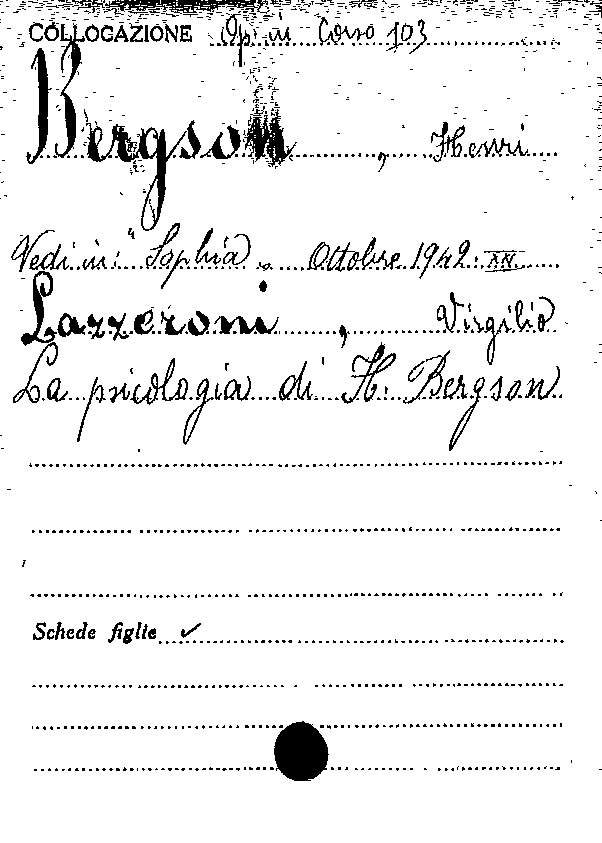 COLLOGAZIONE Op. in Corso 103
Bergson, Henri
Vedi in: "Sophia„ Ottobre 1942. XX.
Lazzeroni, Virgilio
La psicologia di H. Bergson
Schede figlie ✓